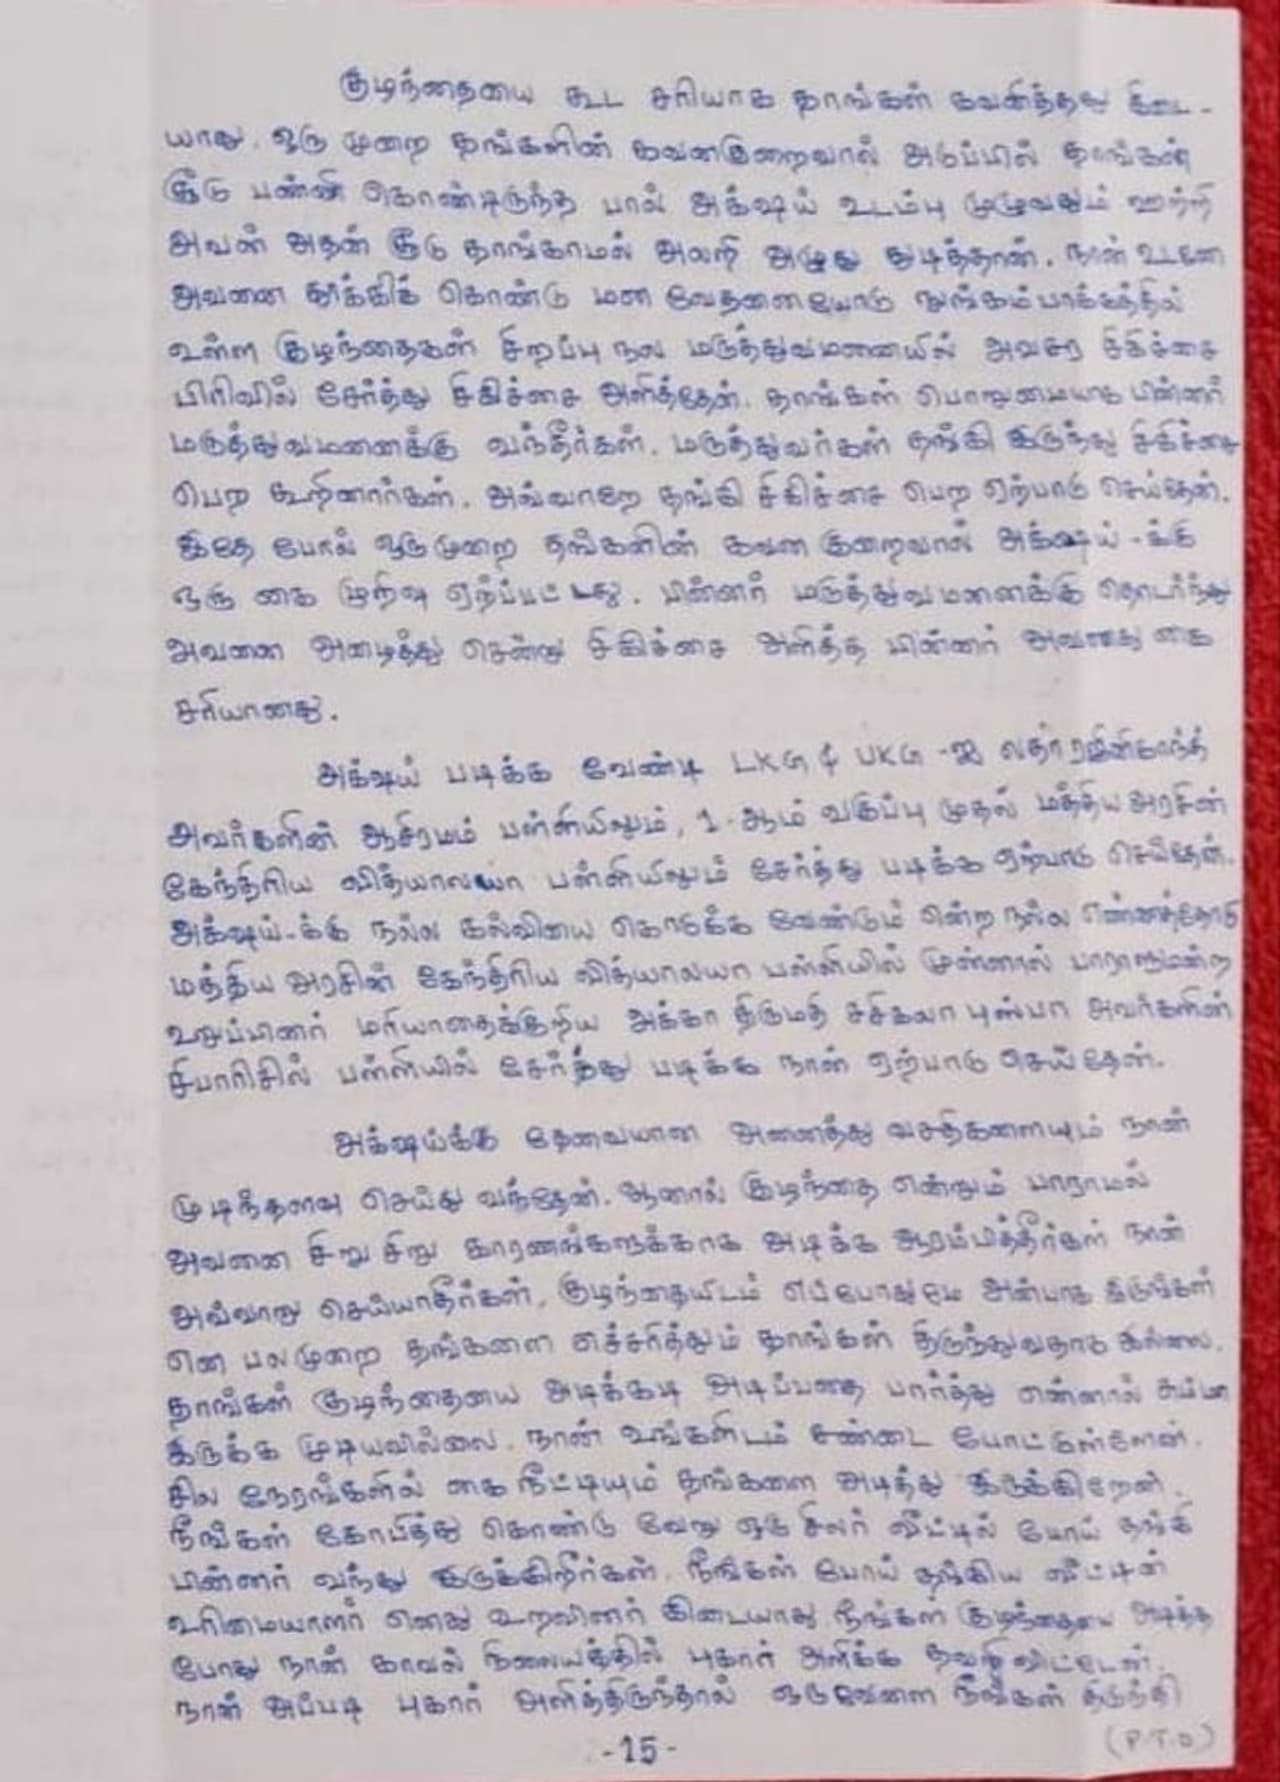 குழந்தையை கூட சரியாக தாங்கள் கவனித்தது கிடை-
யாது. ஒரு முறை தங்களின் கவனகுறைவால் அடுப்பில் தாங்கள்
சூடு பண்ணி கொண்டிருந்த பால் அக்‌ஷய் உடம்பு முழுவதும் ஊற்றி
அவன் அதன் சூடு தாங்காமல் அலறி அழுது துடித்தான். நான் உடனே
அவனை தூக்கிக் கொண்டு மன வேதனையோடு நுங்கம்பாக்கத்தில்
உள்ள குழந்தைகள் சிறப்பு நல மருத்துவமனையில் அவசர சிகிச்சை
பிரிவில் சேர்த்து சிகிச்சை அளித்தேன். தாங்கள் பொறுமையாக பின்னர்
மருத்துவமனைக்கு வந்தீர்கள். மருத்துவர்கள் தங்கி இருந்து சிகிச்சை
பெற கூறினார்கள். அவ்வாறே தங்கி சிகிச்சை பெற ஏற்பாடு செய்தேன்.
இதே போல் ஒருமுறை தங்களின் கவன குறைவால் அக்‌ஷய்-க்கு
ஒரு கை முறிவு ஏற்ப்பட்டது. பின்னர் மருத்துவமனைக்கு தொடர்ந்து
அவனை அழைத்து சென்று சிகிச்சை அளித்த பின்னர் அவனது கை
சரியானது.
அக்‌ஷய் படிக்க வேண்டி LKG & UKG -ஐ லதா ரஜினிகாந்த்
அவர்களின் ஆசிரமம் பள்ளியிலும், 1-ஆம் வகுப்பு முதல் மத்திய அரசின்
கேந்திரிய வித்யாலயா பள்ளியிலும் சேர்த்து படிக்க ஏற்பாடு செய்தேன்.
அக்‌ஷய்-க்கு நல்ல கல்வியை கொடுக்க வேண்டும் என்ற நல்ல எண்ணத்தோடு
மத்திய அரசின் கேந்திரிய வித்யாலயா பள்ளியில் முன்னால் பாராளுமன்ற
உறுப்பினர் மரியாதைக்குறிய அக்கா திருமதி சசிகலா புஸ்பா அவர்களின்
சிபாரிசில் பள்ளியில் சேர்த்து படிக்க நான் ஏற்பாடு செய்தேன்.
அக்‌ஷய்க்கு தேவையான அனைத்து வசதிகளையும் நான்
முடிந்தளவு செய்து வந்தேன். ஆனால் குழந்தை என்றும் பாராமல்
அவனை சிறு சிறு காரணங்களுக்காக அடிக்க ஆரம்பித்தீர்கள் நான்
அவ்வாறு செய்யாதீர்கள், குழந்தையிடம் எப்போதுமே அன்பாக இருங்கள்
என பலமுறை தங்களை எச்சரித்தும் தாங்கள் திருந்துவதாக இல்லை.
தாங்கள் குழந்தையை அடிக்கடி அடிப்பதை பார்த்து என்னால் சும்மா
இருக்க முடியவில்லை. நான் உங்களிடம் சண்டை போட்டுள்ளேன்.
சில நேரங்களில் கை நீட்டியும் தங்களை அடித்து இருக்கிறேன்.
நீங்கள் கோபித்து கொண்டு வேறு ஒரு சிலர் வீட்டில் போய் தங்கி
பின்னர் வந்து இருக்கிறீர்கள். நீங்கள் போய் தங்கிய வீட்டின்
உரிமையாளர் எனது உறவினர் கிடையாது. நீங்கள் குழந்தையை அடித்த
போது நான் காவல் நிலையத்தில் புகார் அளிக்க தவறி விட்டேன்.
நான் அப்படி புகார் அளித்திருந்தால் ஒருவேளை நீங்கள் திருந்தி
(P.T.O)
-15-